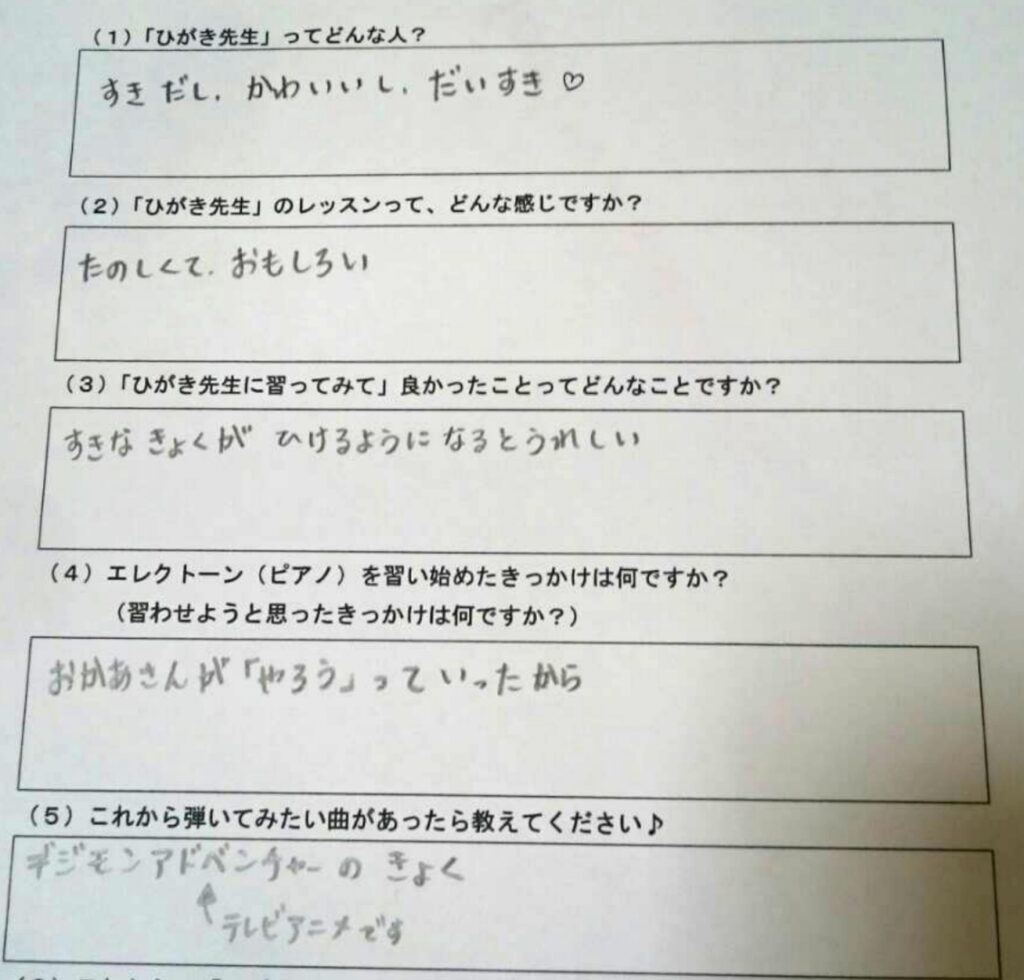 （1）「ひがき先生」ってどんな人？
すきだし、かわいいし、だいすき♡
（2）「ひがき先生」のレッスンって、どんな感じですか？
たのしくて、おもしろい
（3）「ひがき先生に習ってみて」良かったことってどんなことですか？
すきなきょくが ひけるようになるとうれしい
（4）エレクトーン（ピアノ）を習い始めたきっかけは何ですか？
（習わせようと思ったきっかけは何ですか？）
おかあさんが「やろう」っていったから
（5）これから弾いてみたい曲があったら教えてください♪
デジモンアドベンチャーの きょく
↑
テレビアニメです